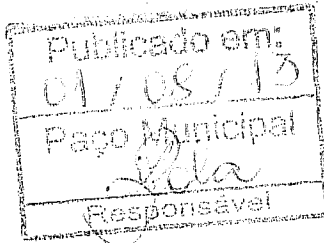 Publicado em:
01 / 08 / 13
Paço Municipal
Responsável